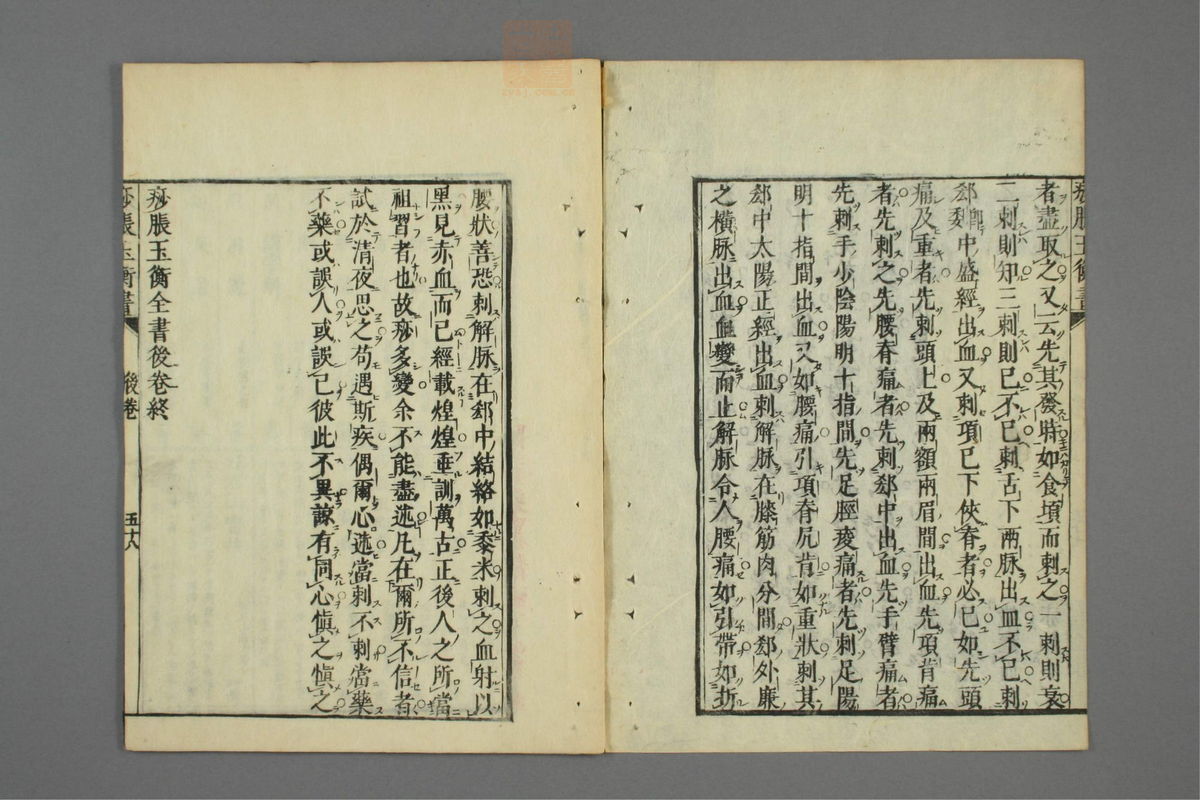 痧脹玉衡書
者盡取之又云先其發時如食頃而刺之一刺則衰
二刺則知三刺則已不已刺舌下兩脉出血不已刺
郄中盛經出血又刺項已下俠脊者必已如先頭
痛及重者先刺頭上及兩額兩眉間出血先項背痛
者先刺之先腰脊痛者先刺郄中出血先手臂痛者
先刺手少陰陽明十指間先足脛痠痛者先刺足陽
明十指間出血又如腰痛引項脊尻背如重狀刺其
郄中太陽正經出血刺解脉在膝筋肉分間郄外廉
之橫脉出血血變而止解脉令人腰痛如引帶如折
腰狀善恐刺解脉在郄中結絡如黍米刺之血射以
黑見赤血而已經載煌煌垂訓萬古正後人之所當
祖習者也故痧多變余不能盡述凡在爾所不信者
試於清夜思之苟遇斯疾偶爾心迷當刺不刺當藥
不藥或誤人或誤己彼此不異諒有同心愼之愼之
痧脹玉衡全書後卷終
痧脹玉衡書 後卷 五十八
zysj.com.cn